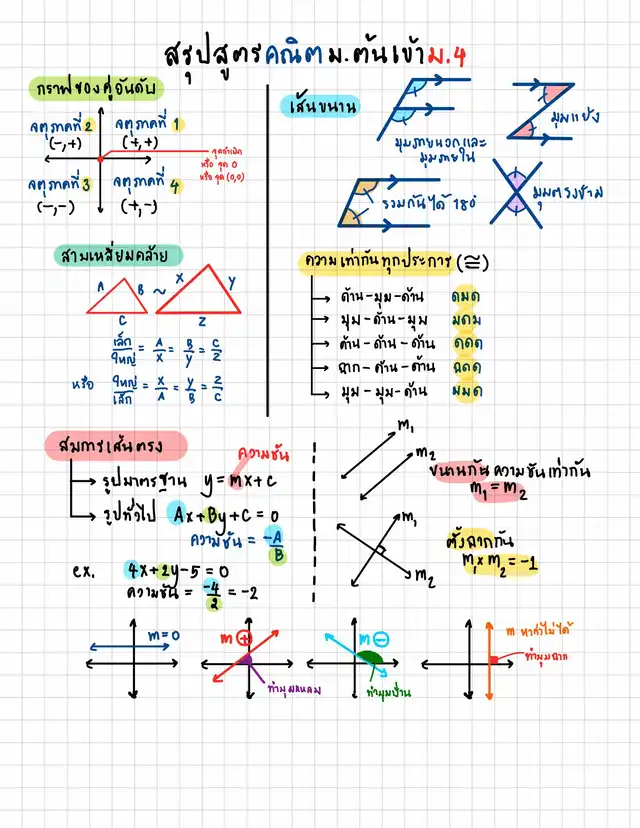 สรุปสูตรคณิตม.ต้นเข้าม.4
กราฟของคู่อันดับ
จตุภาคที่ 2
(-,+)
จตุภาคที่ 1
(+,+)
จุดกำเนิด
หรือ จุด 0
หรือ จุด (0,0)
จตุภาคที่ 3
(-,-)
จตุภาคที่ 4
(+,-)
เส้นขนาน
มุมภายนอกและ
มุมภายใน
มุมแย้ง
รวมกันได้ 180°
มุมตรงข้าม
สามเหลี่ยมคล้าย
A B ~ X Y
C Z
เล็ก/ใหญ่ = A/X = B/Y = C/Z
หรือ ใหญ่/เล็ก = X/A = Y/B = Z/C
ความเท่ากันทุกประการ (≅)
ด้าน-มุม-ด้าน ดมด
มุม-ด้าน-มุม มดม
ด้าน-ด้าน-ด้าน ดดด
ฉาก-ด้าน-ด้าน ฉดด
มุม-มุม-ด้าน มมด
สมการเส้นตรง
ความชัน
รูปมาตรฐาน y=mx+c
รูปทั่วไป Ax+By+C=0
ความชัน = -A/B
ex. 4x+2y-5=0
ความชัน = -4/2 = -2
m₁
m₂
ขนานกัน ความชันเท่ากัน
m₁=m₂
m₁
m₂
ตั้งฉากกัน
m₁×m₂=-1
m=0
m +
ทำมุมแหลม
m -
ทำมุมป้าน
m หาค่าไม่ได้
ทำมุมฉาก